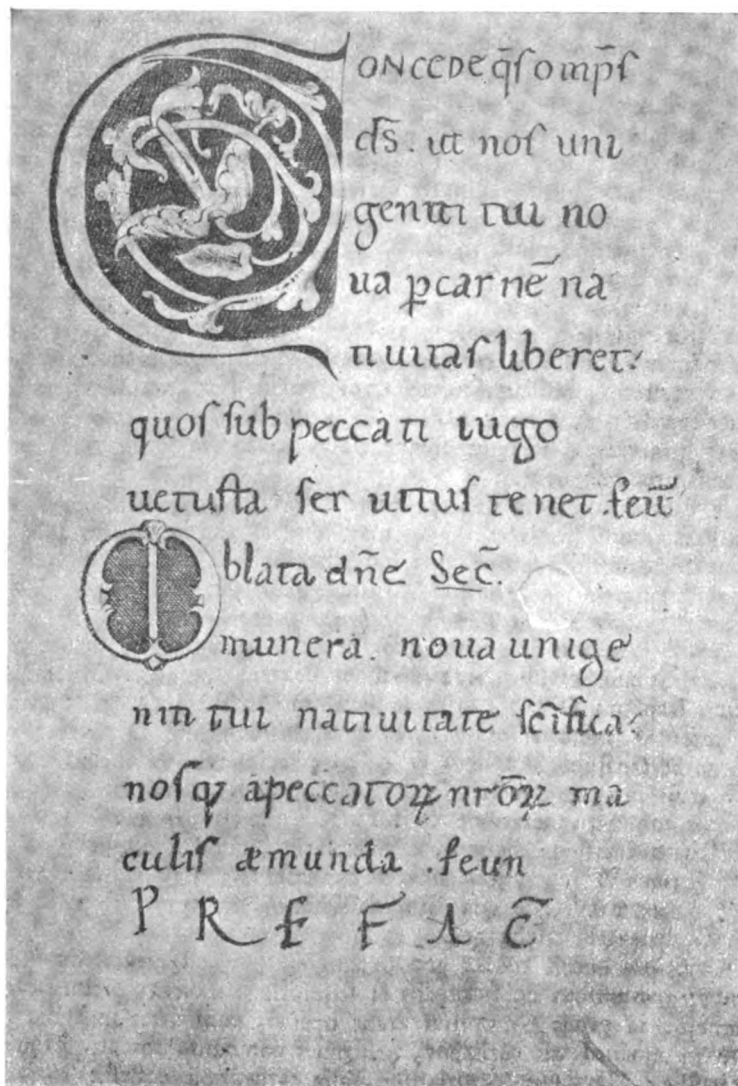 CONCEDE q̄ſ omp̄ſ
d̄s. ut noſ uni
geniti tui no
ua ꝑ carnē na
tiuitaſ liberet:
quoſ ſub peccati iugo
uetuſta ſer uituſ te net.
Oblata dn̄e Sec̄.
munera. noua unige
niti tui natiuitate ſc̄ifica:
noſq; apeccatoꝝ nr̄oꝝ ma
culiſ æmunda.
PREFAC̄